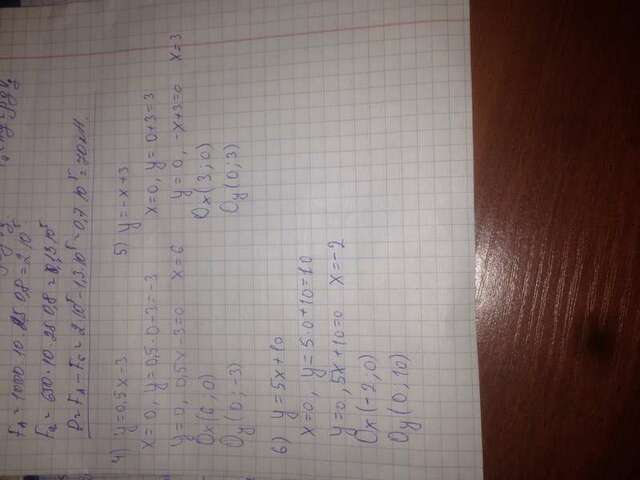 F_A = 1000·10·25·0,8 = 2·10⁵
= 650·10·25·0,8 = 1,3·10⁵
P = F_A - F = 2·10⁵ - 1,3·10⁵ = 0,7·10⁵ = 70 кН
4) y=0,5x-3
x=0, y=0,5·0-3=-3
y=0, 0,5x-3=0 x=6
Ox(6;0)
Oy(0;-3)
5) y=-x+3
x=0, y=0+3=3
y=0, -x+3=0 x=3
Ox(3;0)
Oy(0;3)
6) y=5x+10
x=0, y=5·0+10=10
y=0, 5x+10=0 x=-2
Ox(-2;0)
Oy(0;10)